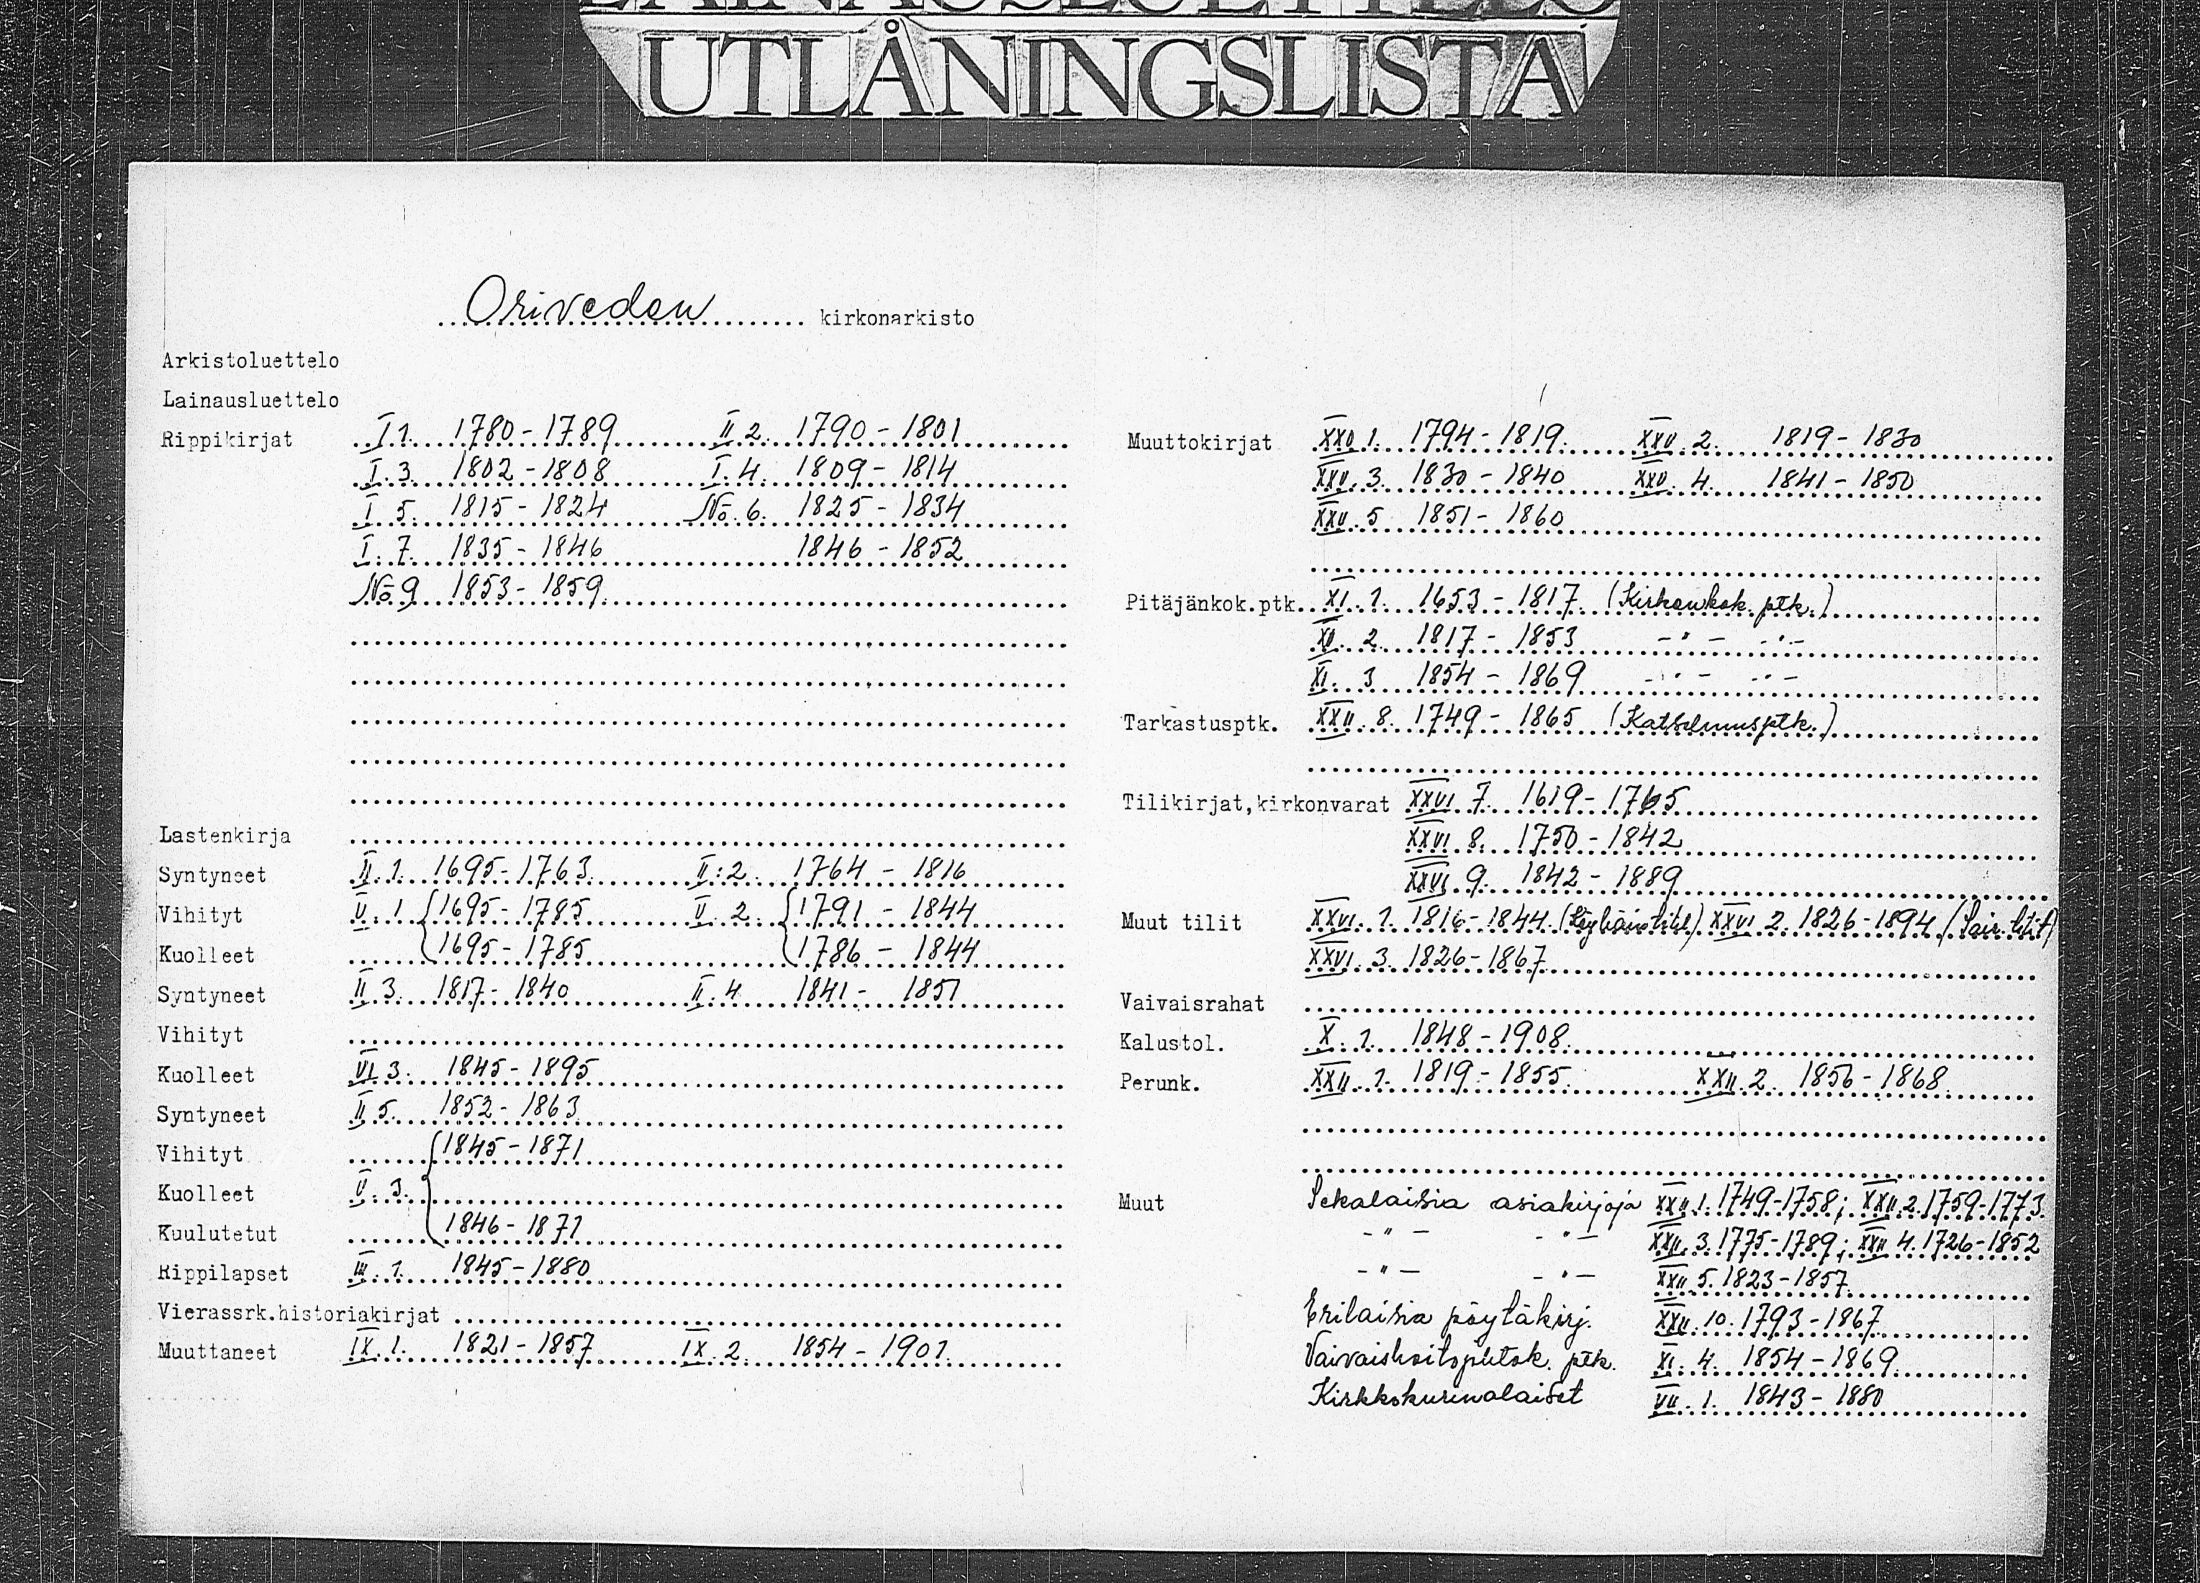 LAINAUSLUETTELO
UTLÅNINGSLISTA
Oriveden kirkonarkisto
Arkistoluettelo
Lainausluettelo
Rippikirjat I 1. 1780-1789 II 2. 1790-1801
I. 3. 1802-1808 I. 4. 1809-1814
I 5. 1815-1824 No. 6. 1825-1834
I. 7. 1835-1846 1846-1852
No 9 1853-1859
Lastenkirja
Syntyneet II. 1. 1695-1763 II:2. 1764-1816
Vihityt V. 1. 1695-1785 V. 2. 1791-1844
Kuolleet 1695-1785 1786-1844
Syntyneet II 3. 1817-1840 II. 4. 1841-1851
Vihityt
Kuolleet VI 3. 1845-1895
Syntyneet II 5. 1852-1863
Vihityt 1845-1871
Kuolleet V. 3.
Kuulutetut 1846-1871
Rippilapset III. 1. 1845-1880
Vierassrk.historiakirjat
Muuttaneet IX. 1. 1821-1857 IX. 2. 1854-1901
Muuttokirjat XXV 1. 1794-1819. XXV. 2. 1819-1830
XXV. 3. 1830-1840 XXV. 4. 1841-1850
XXV. 5 1851-1860
Pitäjänkok.ptk. XI. 1. 1653-1817 (Kirkonkok. ptk.)
XI. 2. 1817-1853 -"- -"-
XI. 3 1854-1869 -"- -"-
Tarkastusptk. XXII. 8. 1749-1865 (Katselmusptk.)
Tilikirjat,kirkonvarat XXVI 7. 1619-1765
XXVI. 8. 1750-1842
XXVI. 9. 1842-1889
Muut tilit XXVI. 1. 1816-1844. XXVI. 2. 1826-1894
XXVI. 3. 1826-1867
Vaivaisrahat
Kalustol. X. 1. 1848-1908.
Perunk. XXII. 1. 1819-1855. XXII. 2. 1856-1868.
Muut Sekalaisia asiakirjoja XXII. 1. 1749-1758; XXII. 2. 1759-1773.
-"- -"- XXII. 3. 1775-1789; XXII 4. 1726-1852
-"- -"- XXII 5. 1823-1857
Erilaisia pöytäkirj. XXII. 10. 1793-1867
Vaivaishoitojohtok. ptk. XI. 4. 1854-1869.
Kirkkokurinalaiset VII. 1. 1843-1880